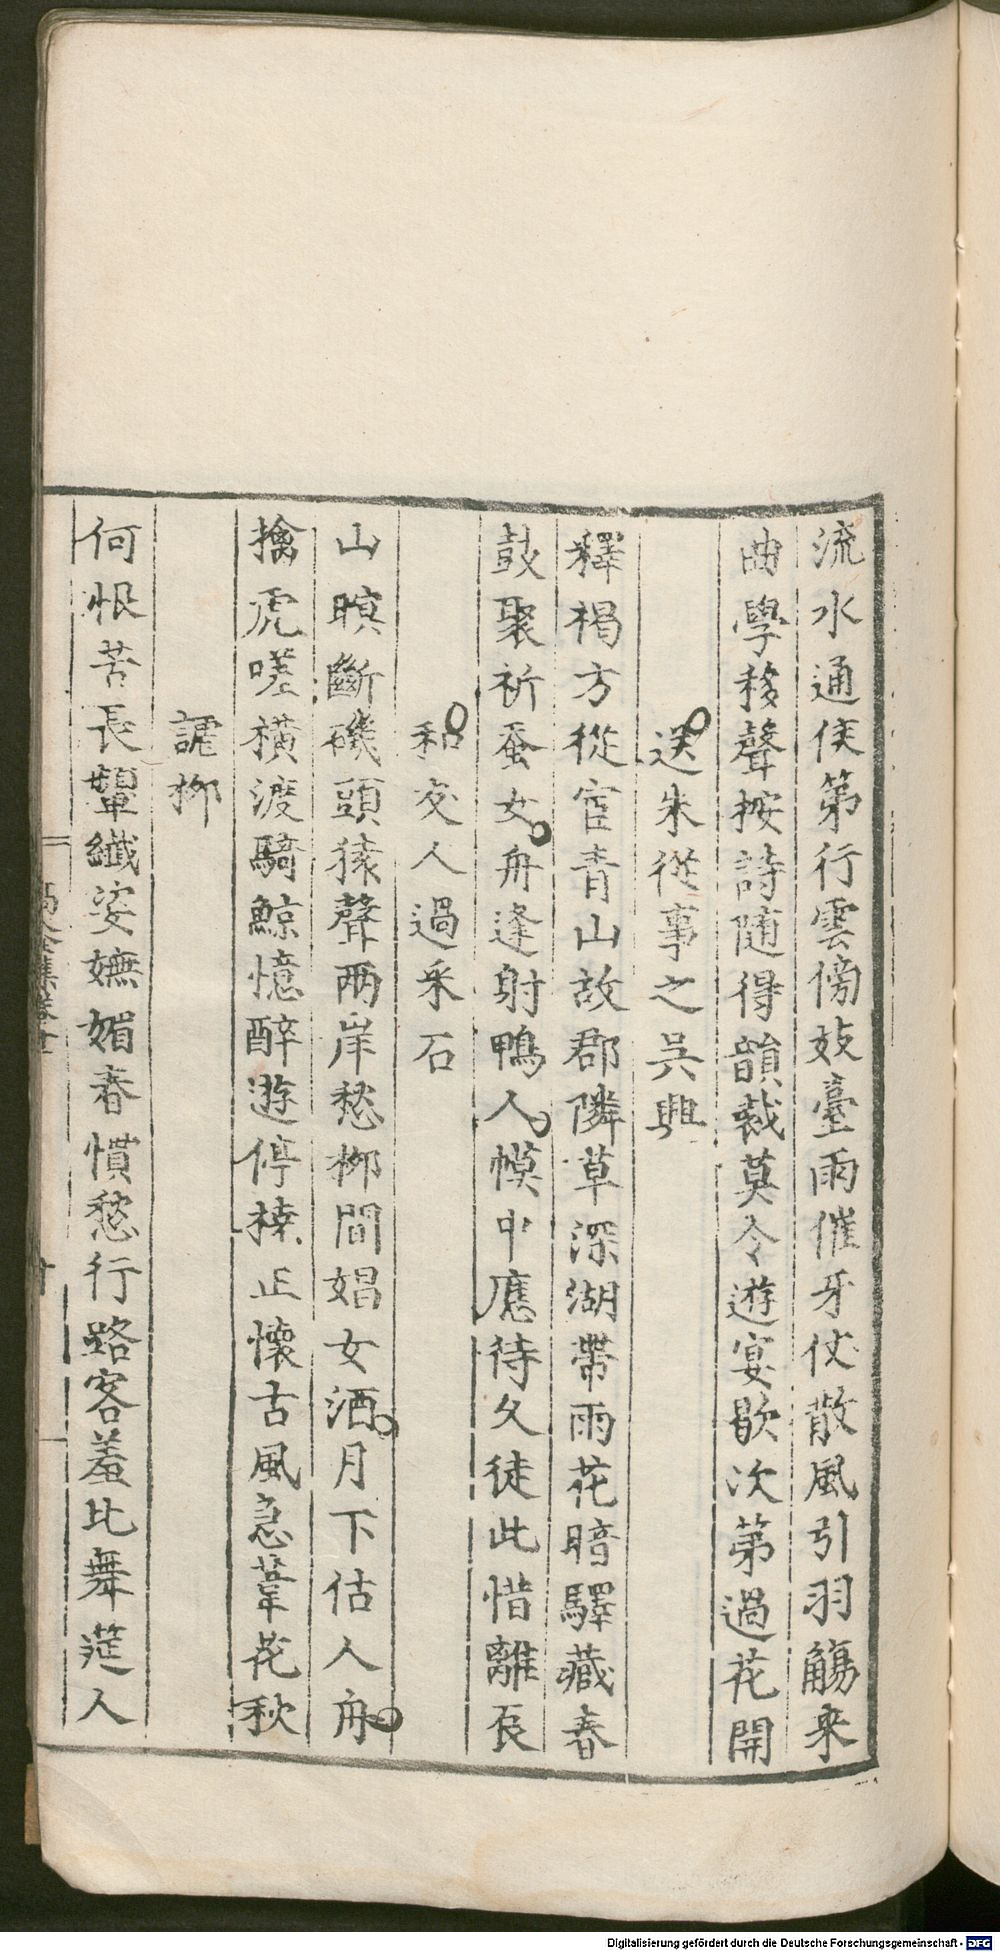 流水通侯第行雲傍妓臺雨催牙仗散風引羽觴来
曲學移聲按詩随得韻裁莫令遊宴歇次第過花開
送朱從事之呉興
釋褐方從宦青山故郡隣草深湖帶雨花暗驛藏春
鼓聚祈蚕女舟逢射鴨人幙中應待久徒此惜離辰
和友人過采石
山暝斷磯頭猿聲兩岸愁柳間娼女酒月下估人舟
擒虎嗟横渡騎鯨憶醉遊停橈正懐古風急葦花秋
謔柳
何恨苦長顰纖姿嫵媚春慣愁行路客羞比舞筵人
集卷十
Digitalisierung gefördert durch die Deutsche Forschungsgemeinschaft - DFG